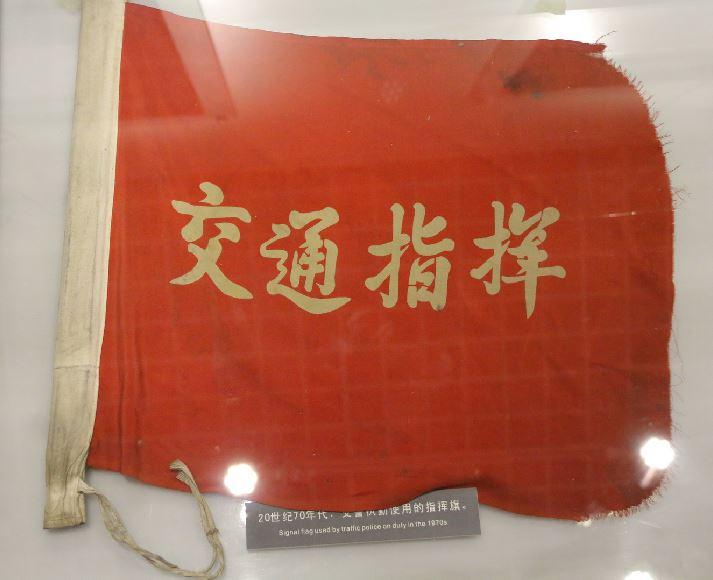 交通指挥
20世纪70年代，交警执勤使用的指挥旗。
Signal flag used by traffic police on duty in the 1970s